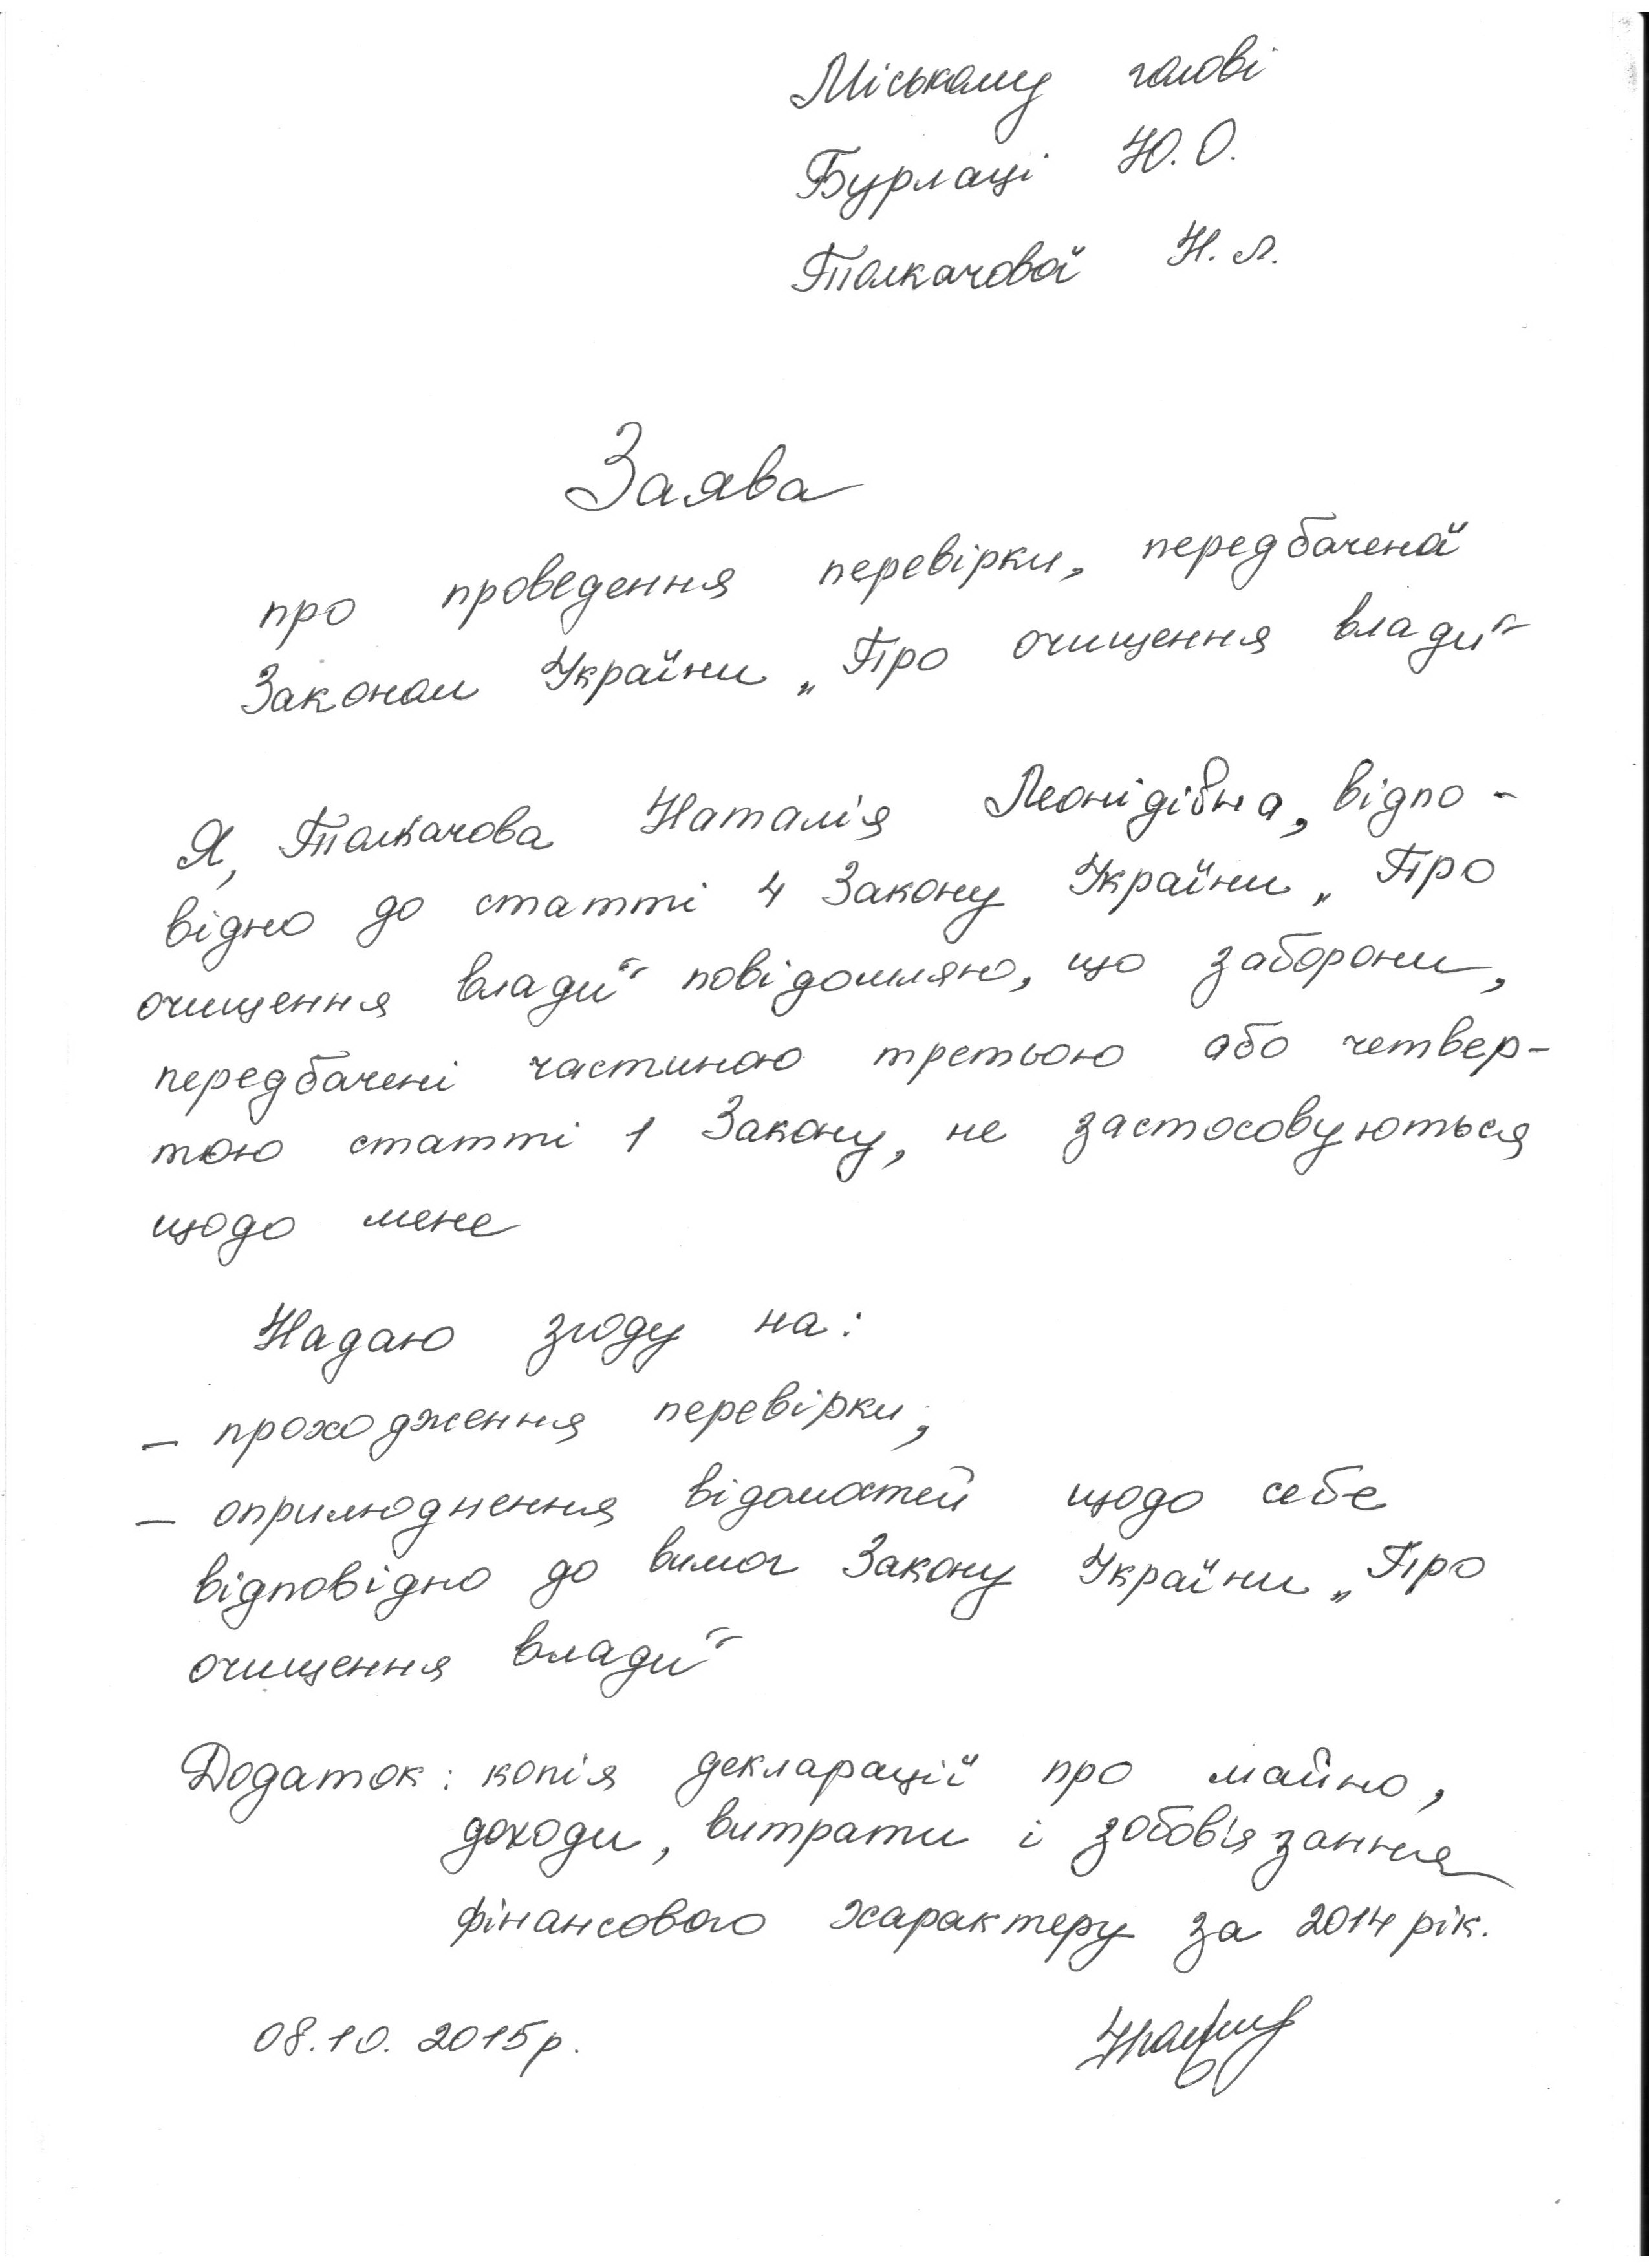 Міському голові
Бурлаці Ю.О.
Толкачової Н.Л.
Заява
про проведення перевірки, передбаченої
Законом України „Про очищення влади“
Я, Толкачова Наталія Леонідівна, відпо-
відно до статті 4 Закону України „Про
очищення влади“ повідомляю, що заборони,
передбачені частиною третьою або четвер-
тою статті 1 Закону, не застосовуються
щодо мене
Надаю згоду на:
– проходження перевірки;
– оприлюднення відомостей щодо себе
відповідно до вимог Закону України „Про
очищення влади“
Додаток: копія декларації про майно,
доходи, витрати і зобов'язання
фінансового характеру за 2014 рік.
08.10.2015р.